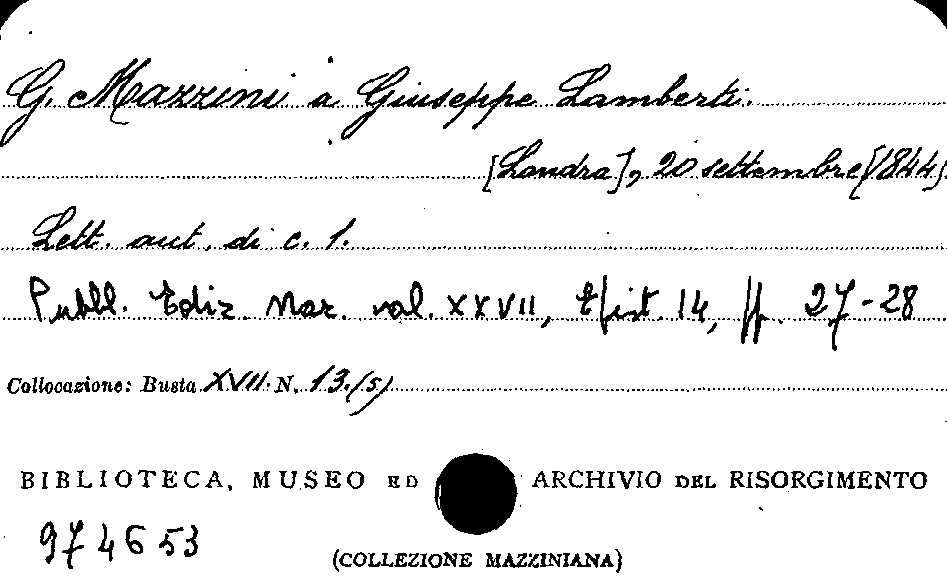 G. Mazzini a Giuseppe Lamberti.
[Londra], 20 settembre [1844].
Lett. aut. di c. 1.
Pubbl. Ediz. Naz. vol. XXVII, Epist. 14, pp. 27-28
Collocazione: Busta XVII N. 13/(5)
BIBLIOTECA, MUSEO ED ARCHIVIO DEL RISORGIMENTO
974653
(COLLEZIONE MAZZINIANA)